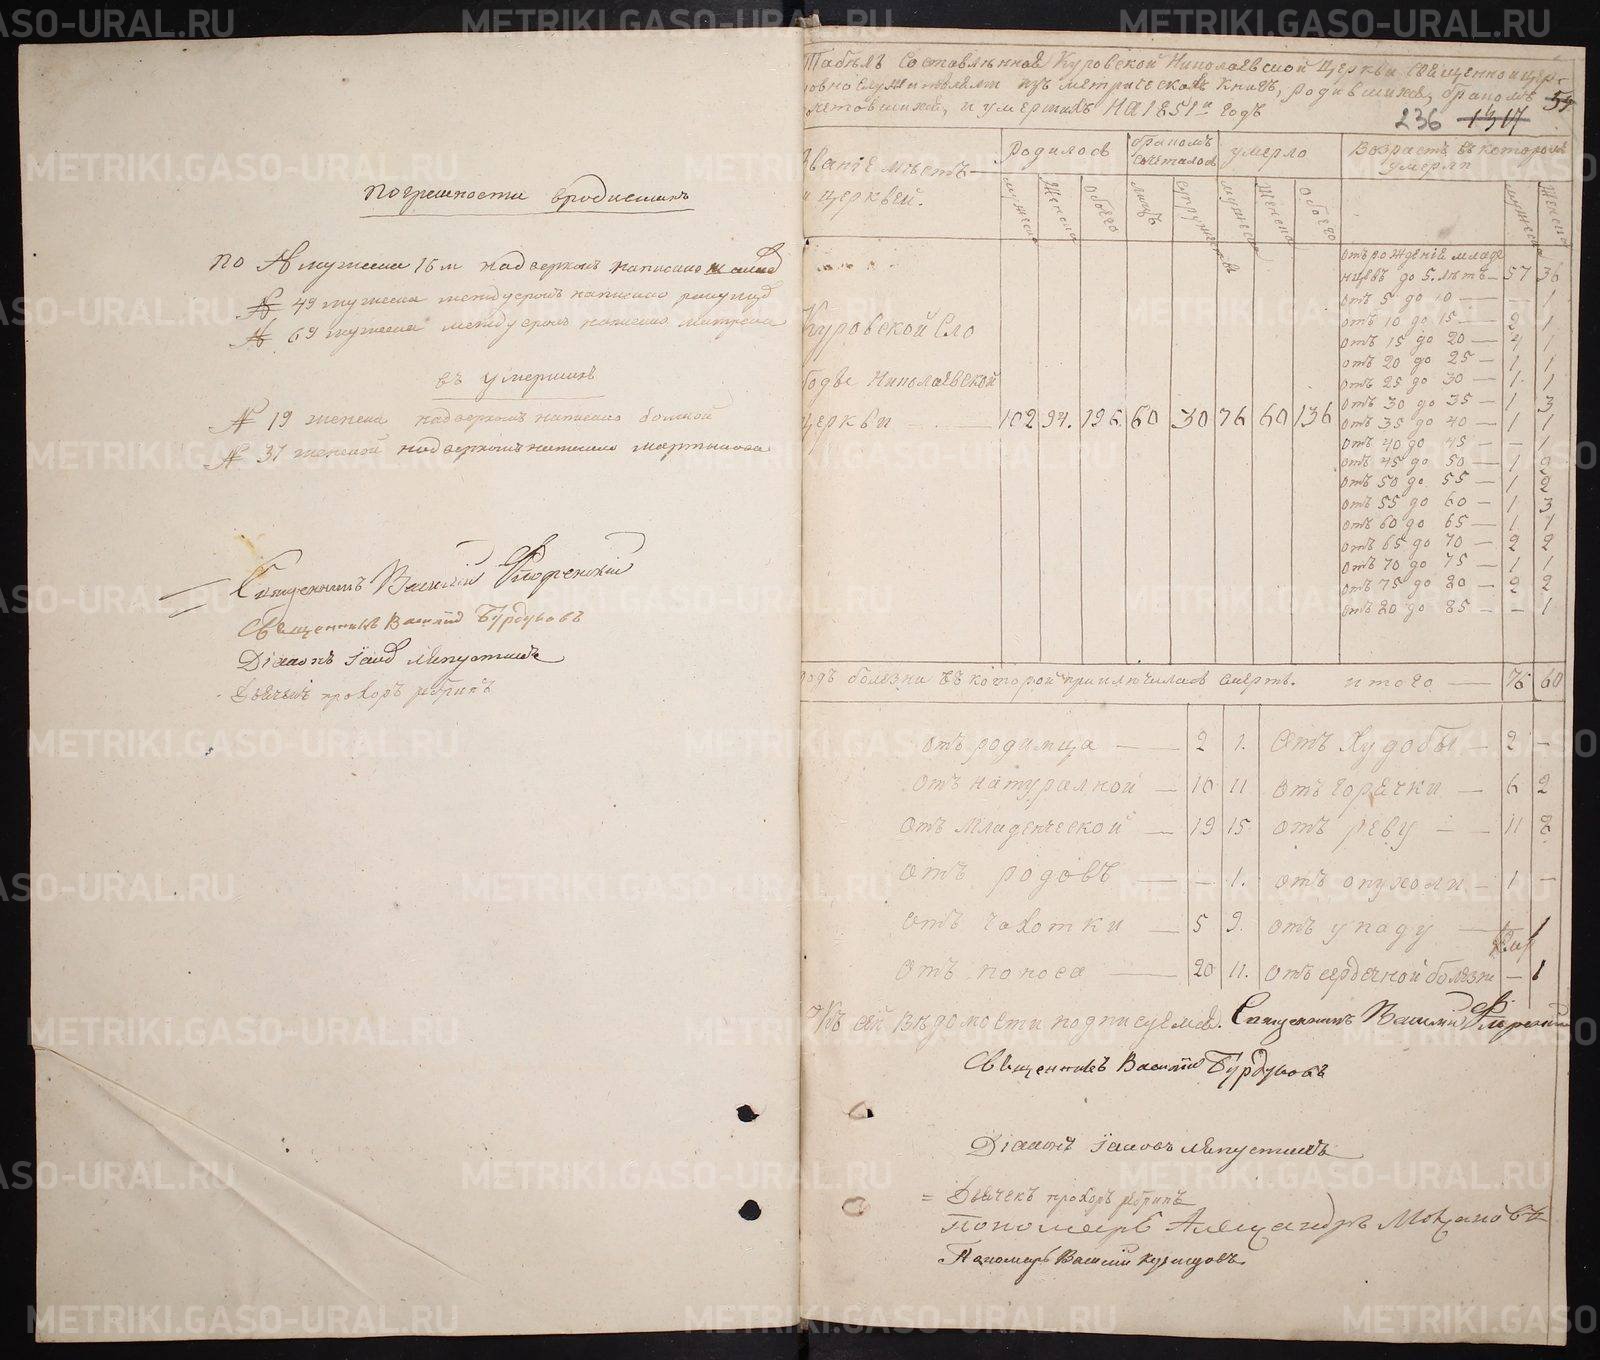 Погрешности вродившихъ
по № мужеска 16 м надверхомъ написано
№ 49 мужеска междустрокъ написано
№ 69 мужеска междустрокъ написано Матрена
въ умершихъ
№ 19 женска надверхомъ написано
№ 37 женской надверхомъ написано мартынова
Священникъ Василий Флоренский
Священникъ Василій Бурдуковъ
Діаконъ Іаковъ
Дьячекъ прохоръ
Табѣль Составленная Куровской Николаевской Церкви Священноицер-
ковнослужителями изъ метрической Книги, родившихся, бракомъ
сочетовшихся, и умершихъ На 1851й годъ
54
236 1317
Званіе мѣстъ и церквей.
Родилось
бракомъ сочеталось
умерло
Возрастъ въ которомъ умерли
мужеска
Женска
обоего
лицъ
супружествъ
мужеска
Женска
обоего
мужеска
Женска
Куровской Сло
бодѣ Николаевской
Церкви 102 94. 196. 60 30 76 60 136
отъ рожденія младе
нцевъ до 5. лѣтъ — 57 36
отъ 5 до 10 — — 1
отъ 10 до 15 — 2 1
отъ 15 до 20 — 4 1
отъ 20 до 25 — 1 1
отъ 25 до 30 — 1. 1
отъ 30 до 35 — 1 3
отъ 35 до 40 — 1 1
отъ 40 до 45 — — 1
отъ 45 до 50 — 1 2
отъ 50 до 55 — 1 2
отъ 55 до 60 — 1 3
отъ 60 до 65 — 1 1
отъ 65 до 70 — 2 2
отъ 70 до 75 — 1 1
отъ 75 до 80 — 2 2
отъ 80 до 85 — — 1
родъ болезни въ которой приключилась смерть. итого — 76 60
отъ родимца — 2 1. Отъ Худобы — 2 —
отъ натуралной — 10 11 отъ горячки — 6 2
отъ Младенческой — 19 15 отъ реву — 11 8
отъ родовъ — — 1. отъ опухоли — 1 —
отъ чахотки — 5 9. отъ упаду — 1
отъ поноса — 20 11. отъ сердечной болѣзни — 1
Къ сей Вѣдомости подписуемся. Священникъ Василий Флоренский
Священникъ Василій Бурдуковъ
Діаконъ Іаковъ
Дьячекъ прохоръ
Пономарь Александръ
Пономарь Василий Кузнецовъ
METRIKI.GASO-URAL.RU